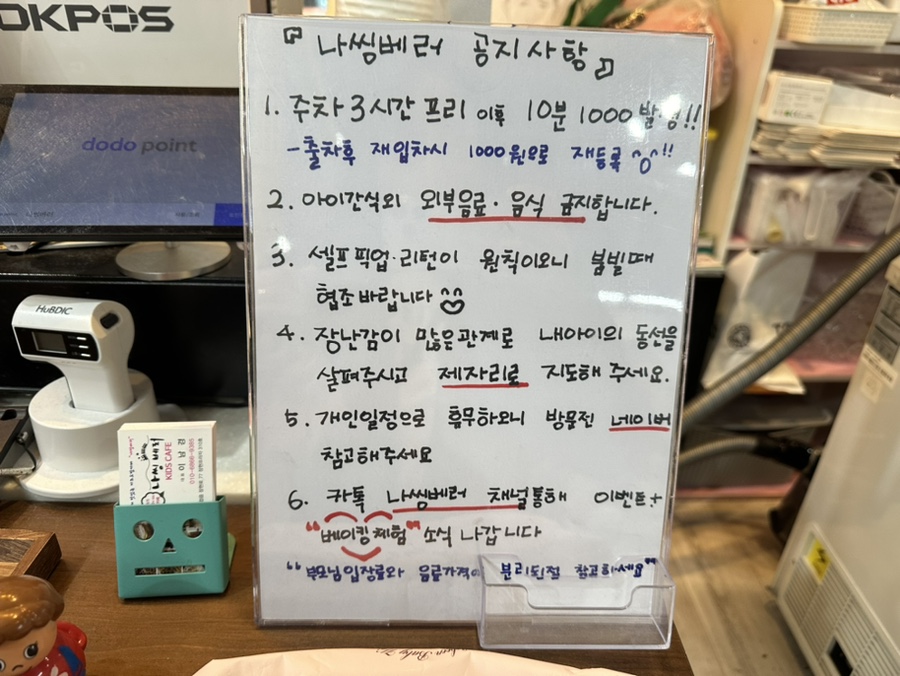 OKPOS
dodo point
HuBDIC
『 나씽베러 공지사항 』
1. 주차 3시간 프리 이후 10분 1000 발생!!
- 출차후 재입차시 1000원으로 재등록 ^o^!!
2. 아이간식외 외부음료·음식 금지합니다.
3. 셀프픽업·리턴이 원칙이오니 붐빌때
협조바랍니다
4. 장난감이 많은관계로 내아이의 동선을
살펴주시고 제자리로 지도해 주세요.
5. 개인일정으로 휴무하오니 방문전 네이버
참고해주세요
6. 카톡 나씽베러 채널통해 이벤트+
"베이킹체험" 소식 나갑니다
"부모님입장료와 음료가격이 분리된점 참고하세요"
나씽베러
KIDS CAFE